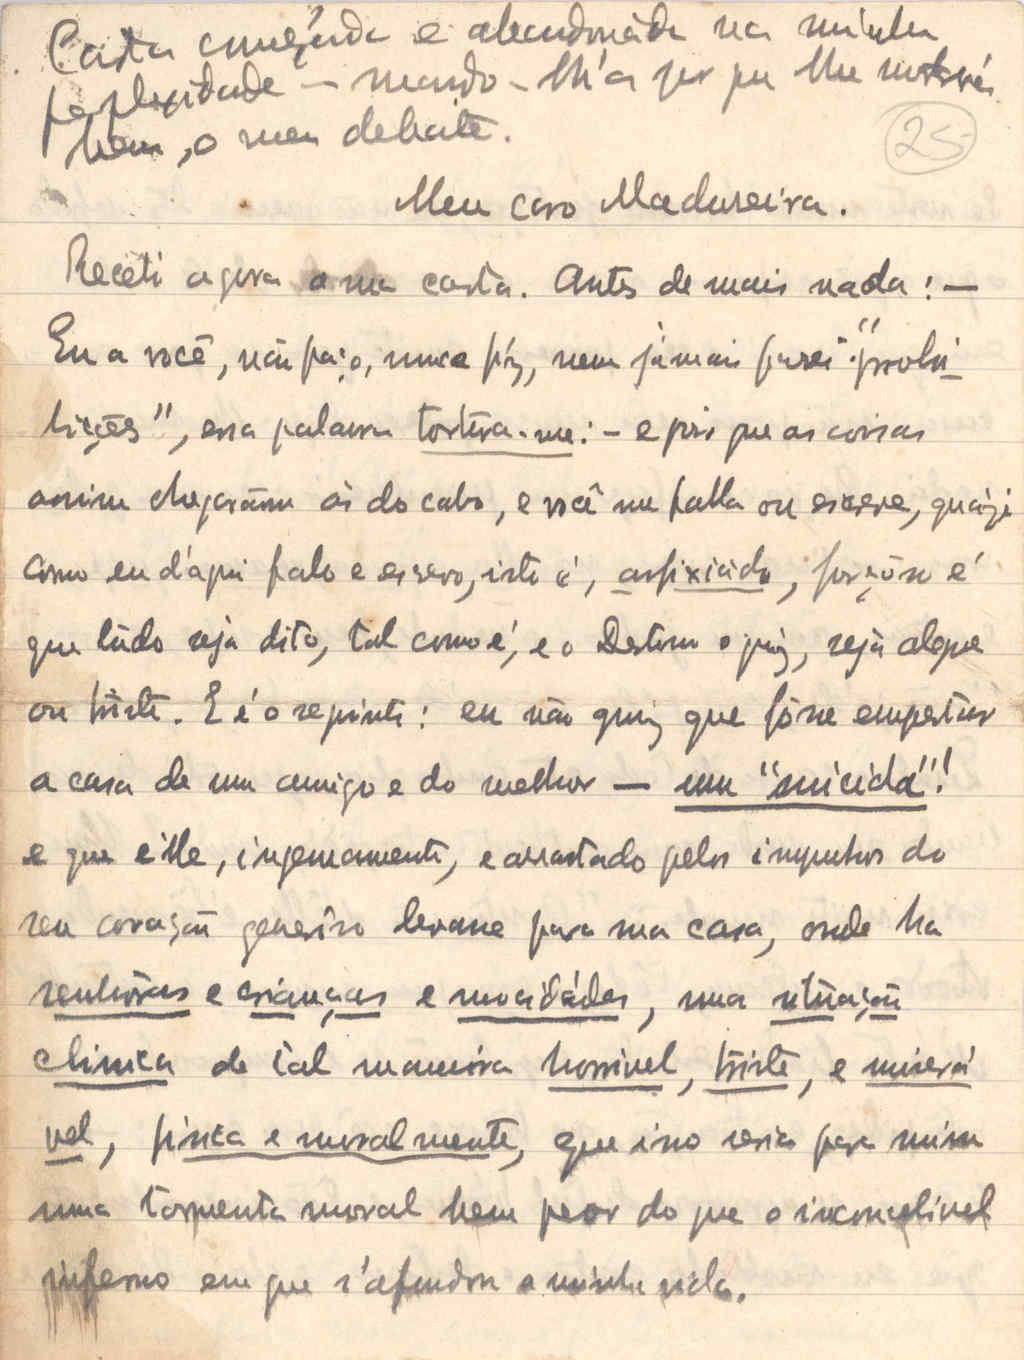 Carta começada e abandonada na minha
perplexidade — mando-lh'a por que lhe mostrará
bem, o meu debate.
25
Meu caro Madureira.
Recebi agora a sua carta. Antes de mais nada: —
Eu a você, não faço, nunca fiz, nem jámais farei "prohi-
bições", essa palavra tortúra-me: — e pois que as coisas
assim chegáram ás do cabo, e você me falla ou escreve, quázi
como eu d'aqui falo e escrevo, isto é, asfixiádo, forçôso é
que túdo seja dito, tal como é, e o Destino o quiz, seja alegre
ou triste. E é o seguinte: eu não quiz que fôsse empestár
a casa de um amigo e do melhor — um "suicida"!
e que êlle, ingenuamente, e arrastado pelos impulsos do
seu coração generôso levasse para sua casa, onde ha
senhôras e crianças e mocidádes, uma situação
clinica de tal maneira horrivel, triste, e miserá
vel, fisica e moralmente, que isso seria para mim
uma tormenta moral bem peor do que o inconcebivel
inferno em que s'afundou a minha vida.